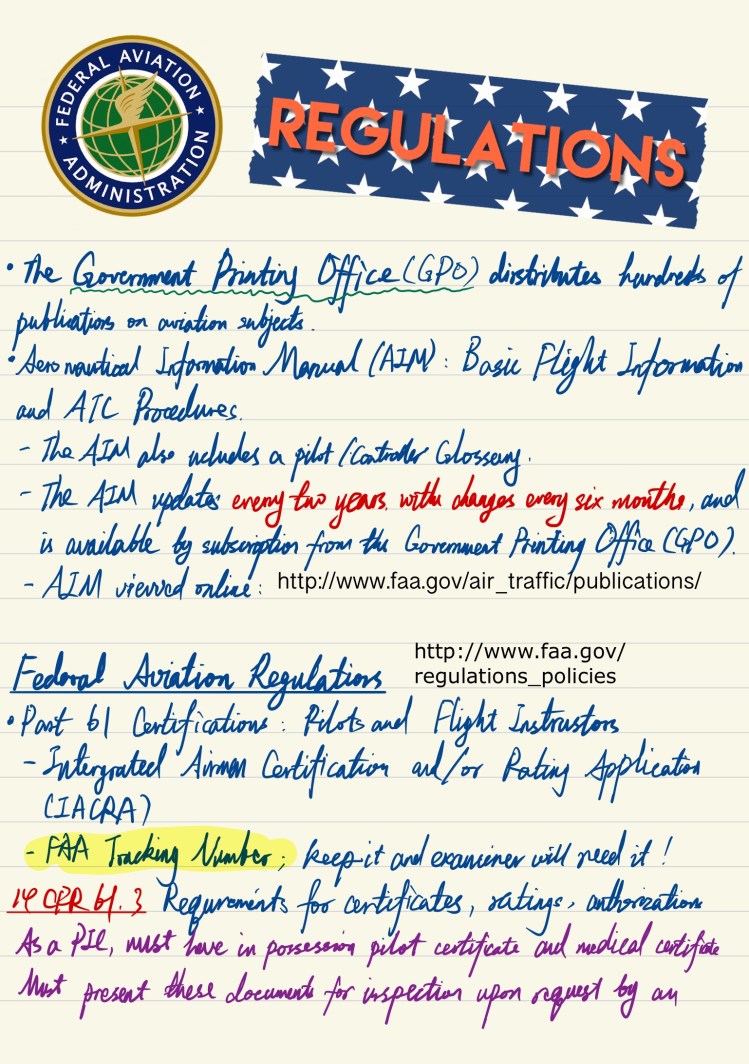 FEDERAL AVIATION
ADMINISTRATION
REGULATIONS
• The Government Printing Office (GPO) dirstributes hundreds of
publications on aviation subjects.
• Aeronautical Information Manual (AIM): Basic Flight Information
and ATC Procedures.
- The AIM also includes a pilot / Controller Glossary.
- The AIM updates every two years, with changes every six months, and
is available by subscription from the Government Printing Office (GPO).
- AIM viewed online: http://www.faa.gov/air_traffic/publications/
http://www.faa.gov/
Federal Aviation Regulations regulations_policies
• Part 61 Certifications: Pilots and Flight Instrustors
- Intergrated Airman Certification and/or Rating Application
(IACRA)
- FAA Tracking Number; keep it and examiner will need it!
14 CFR 61.3 Requirements for certificates, ratings, authorizations
As a PIC, must have in possession pilot certificate and medical certificate
Must present these documents for inspection upon request by an